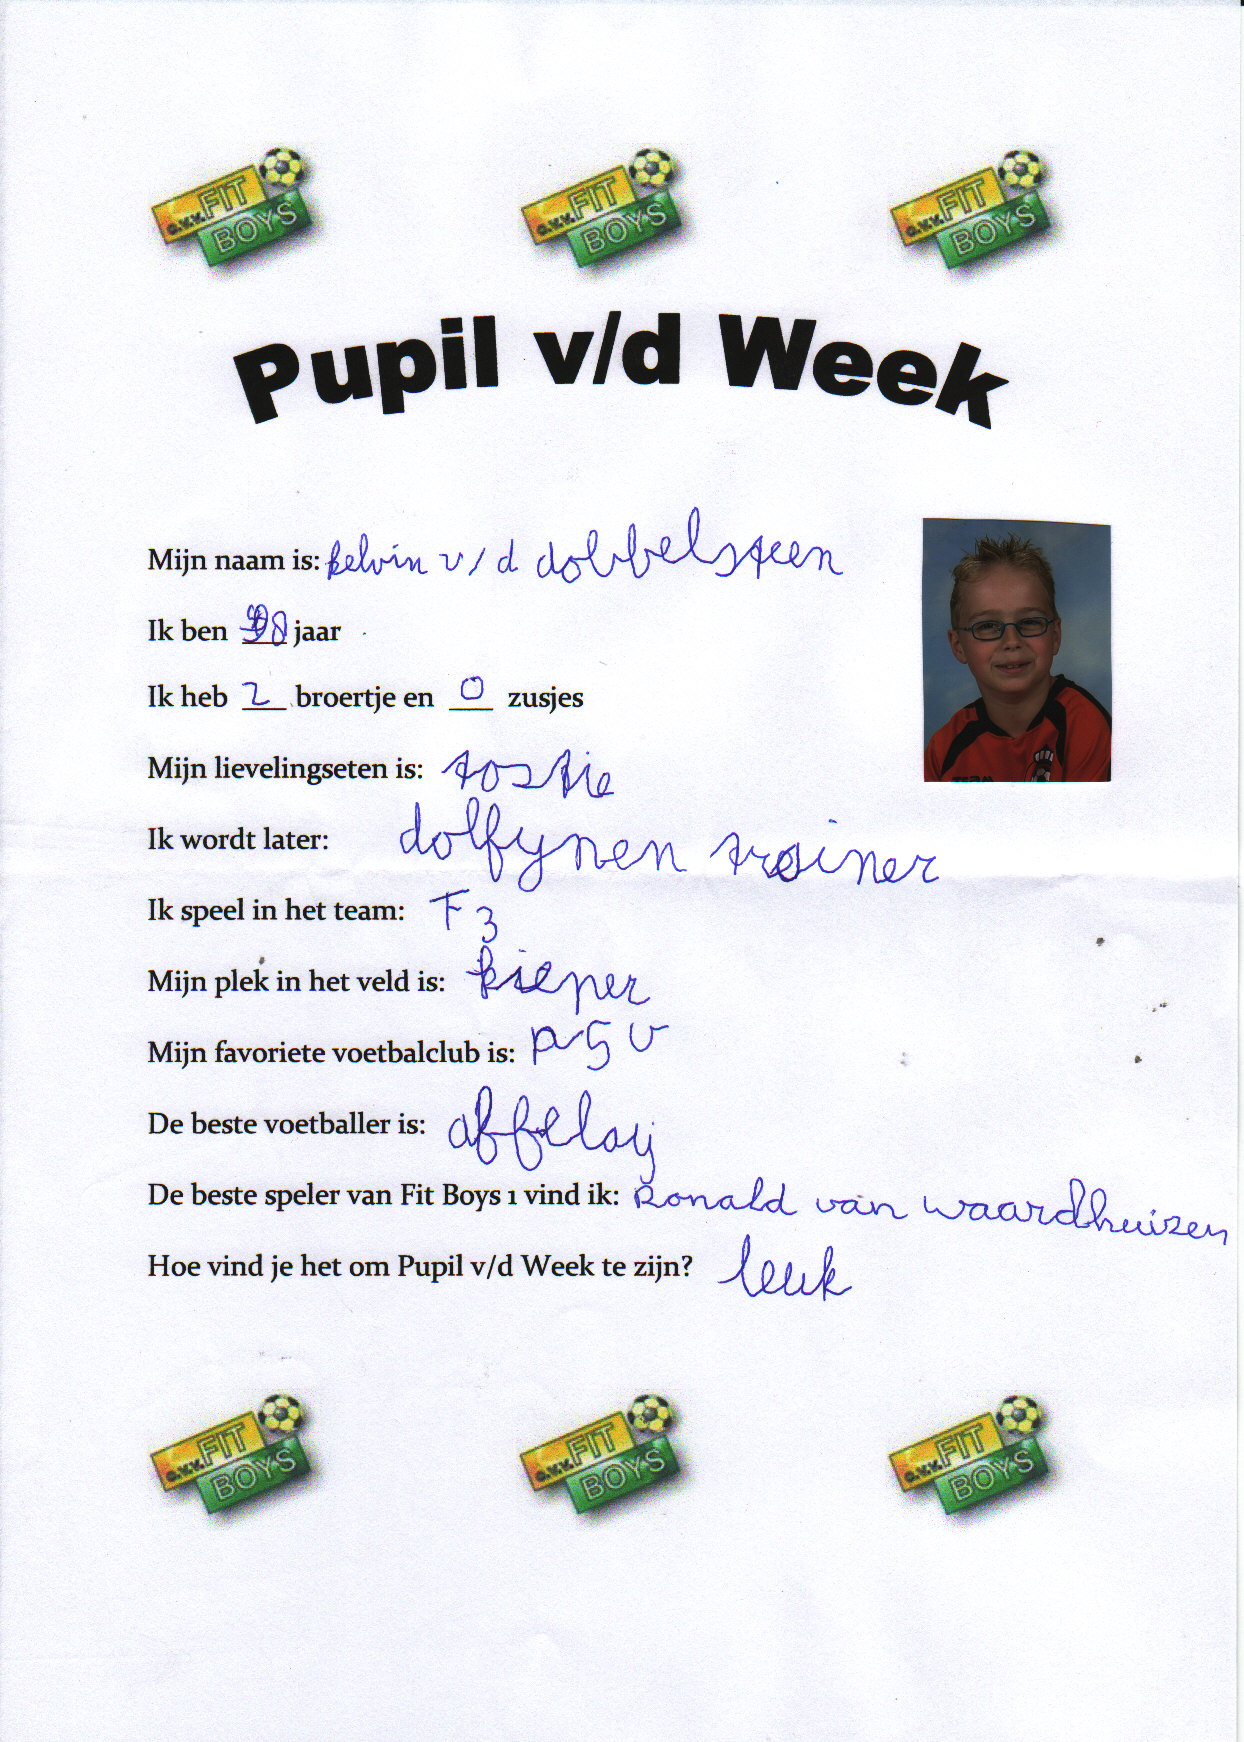 G.V.V. FIT BOYS G.V.V. FIT BOYS G.V.V. FIT BOYS
Pupil v/d Week
Mijn naam is: kelvin v/d dobbelsteen
Ik ben 8 jaar
Ik heb 2 broertje en 0 zusjes
Mijn lievelingseten is: tostie
Ik wordt later: dolfynen trainer
Ik speel in het team: F3
Mijn plek in het veld is: kieper
Mijn favoriete voetbalclub is: PSV
De beste voetballer is: affelay
De beste speler van Fit Boys 1 vind ik: Ronald van waardhuizen
Hoe vind je het om Pupil v/d Week te zijn? leuk
G.V.V. FIT BOYS G.V.V. FIT BOYS G.V.V. FIT BOYS